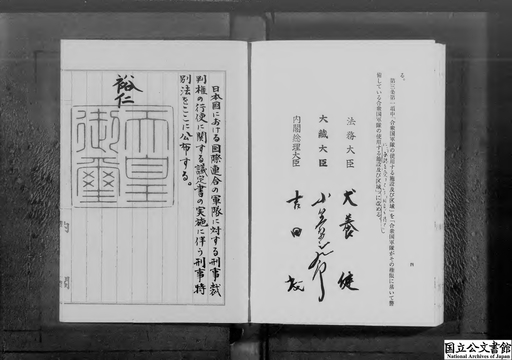 る。
第三条第一項中「合衆国軍隊の使用する施設及び区域」を「合衆国軍隊がその権限に基いて警
備している合衆国軍隊の使用する施設及び区域」に改める。
法務大臣 犬養健
大蔵大臣 小笠原三九郎
内閣総理大臣 吉田茂
日本国における国際連合の軍隊に対する刑事裁
判権の行使に関する議定書の実施に伴う刑事特
別法をここに公布する。
裕仁
天皇
御璽
国立公文書館
National Archives of Japan